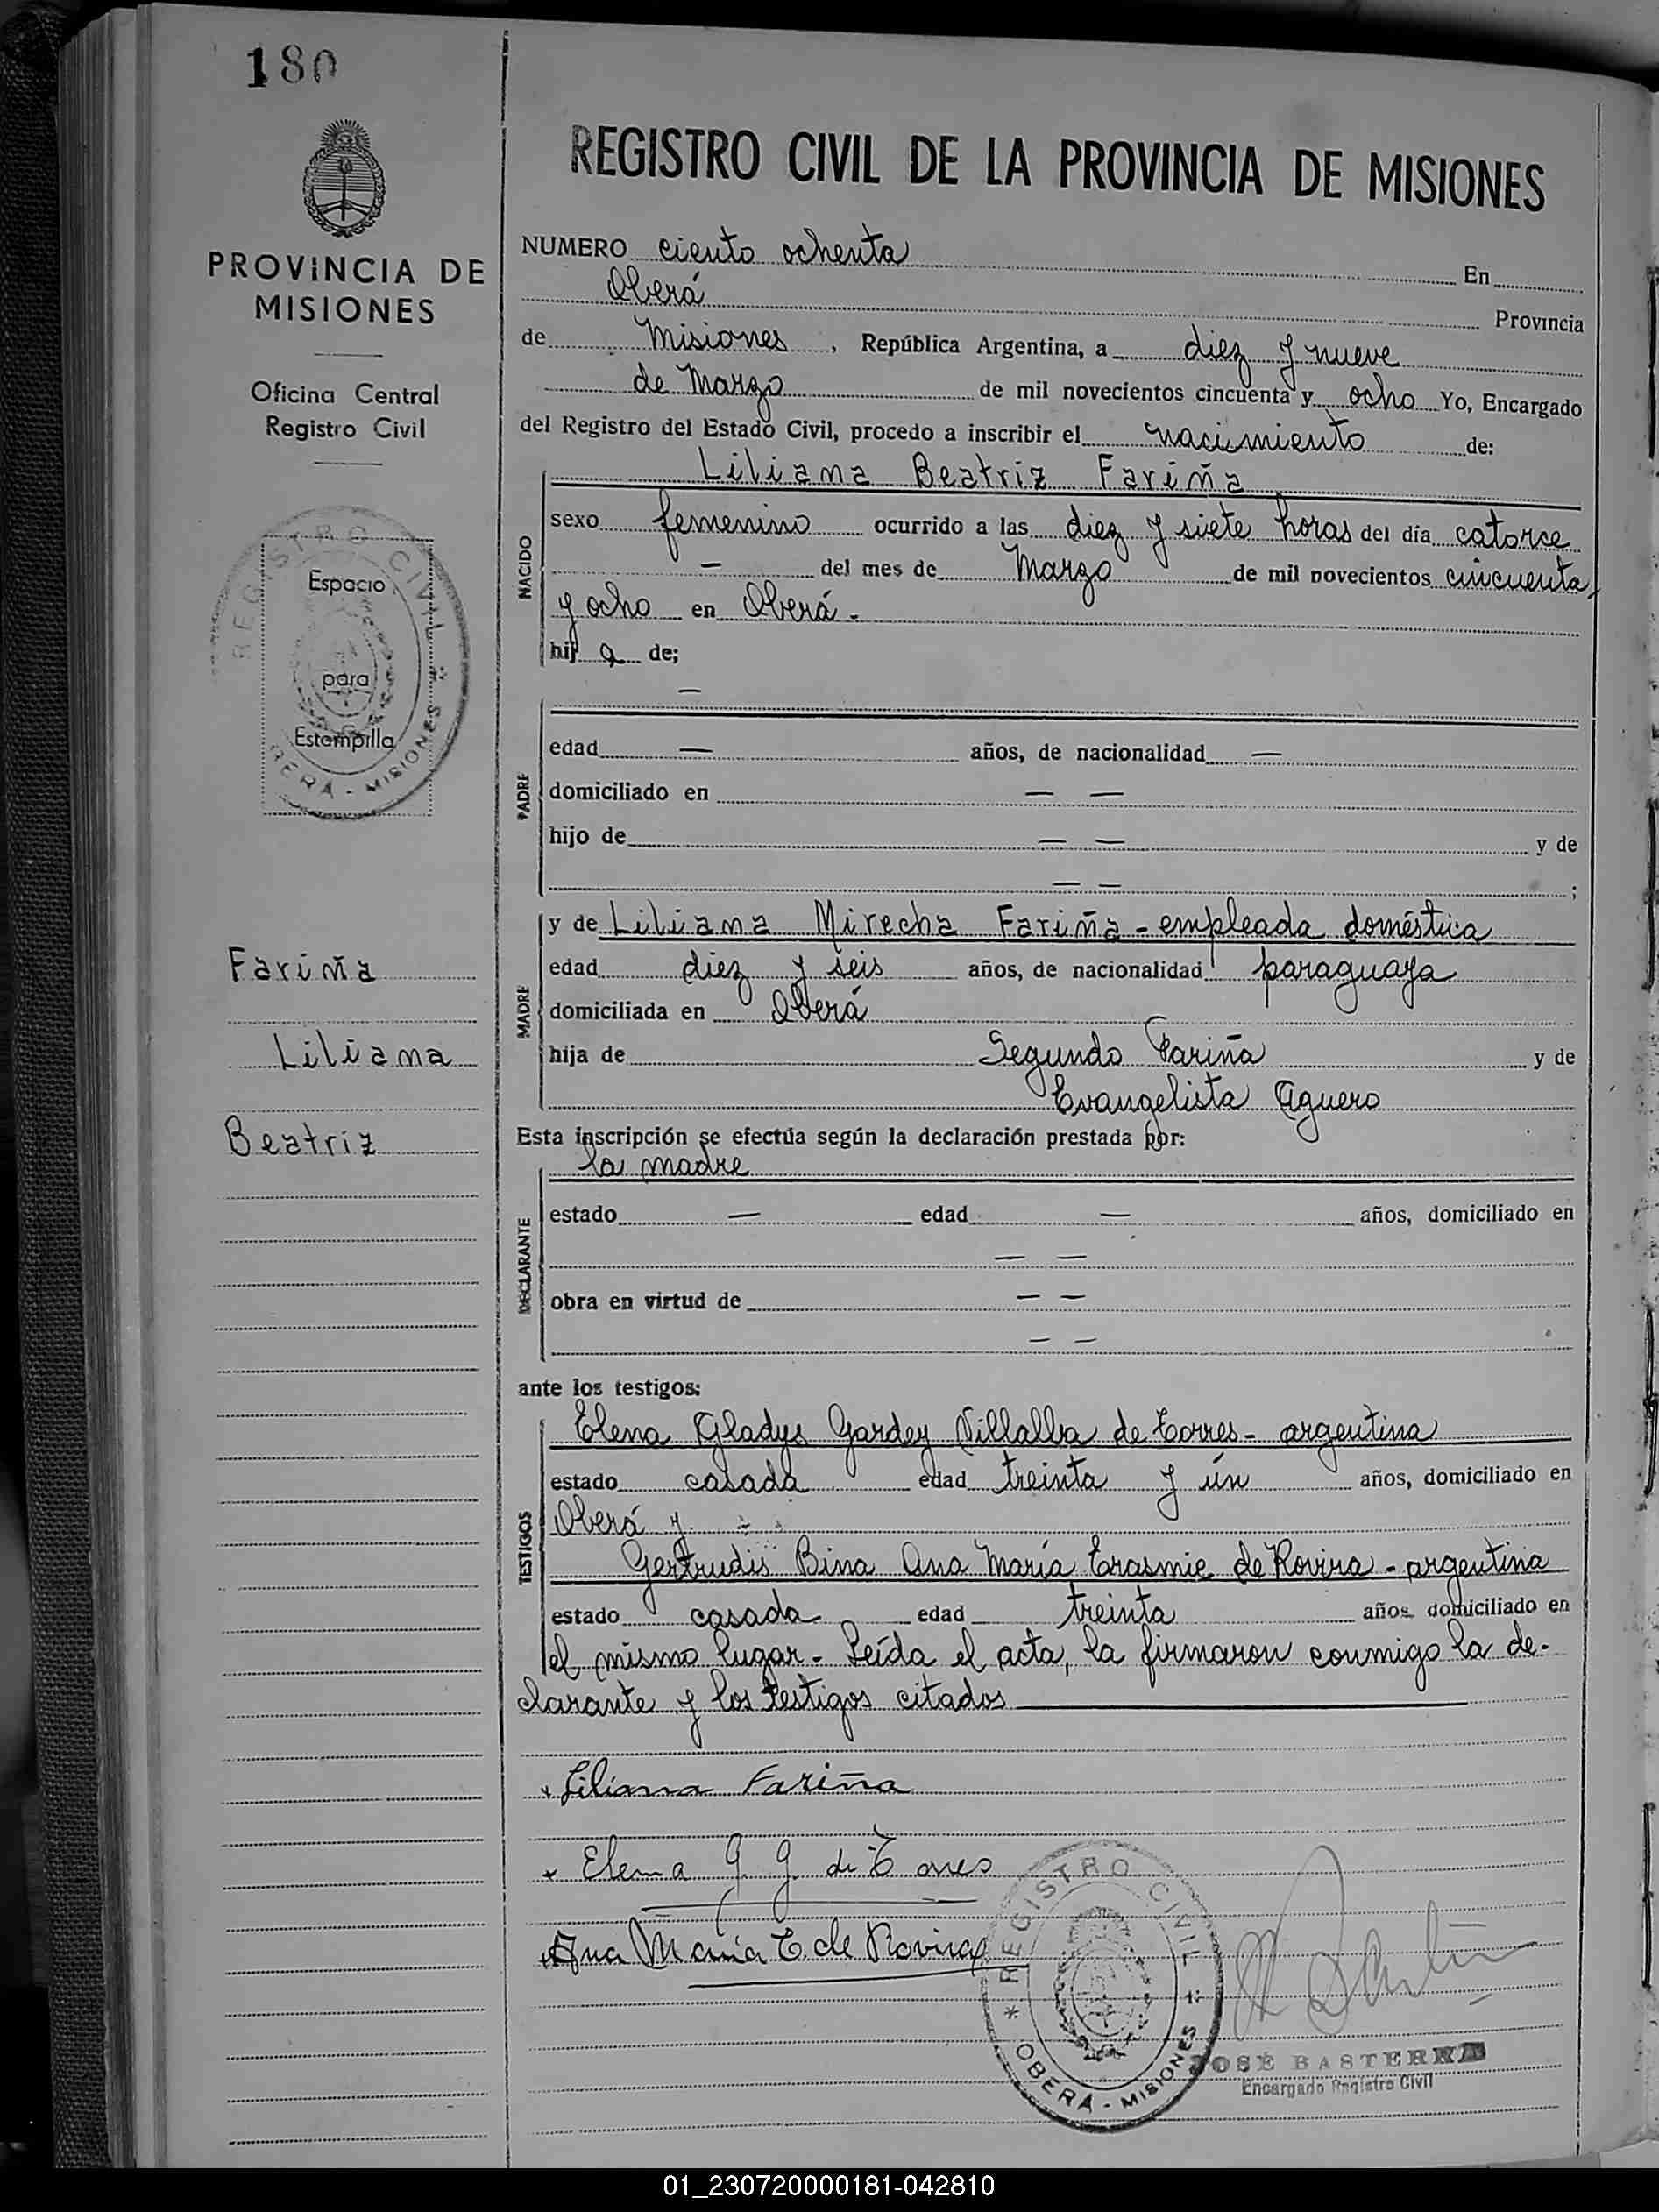 180
PROVINCIA DE
MISIONES
Oficina Central
Registro Civil
REGISTRO CIVIL
Espacio
para
Estampilla
OBERÁ - MISIONES
Fariña
Liliana
Beatriz
REGISTRO CIVIL DE LA PROVINCIA DE MISIONES
NUMERO ciento ochenta En
Oberá Provincia
de Misiones, República Argentina, a diez y nueve
de Marzo de mil novecientos cincuenta y ocho Yo, Encargado
del Registro del Estado Civil, procedo a inscribir el nacimiento de:
Liliana Beatriz Fariña
NACIDO
sexo femenino ocurrido a las diez y siete horas del día catorce
— del mes de Marzo de mil novecientos cincuenta
y ocho en Oberá.-
hija de;
—
PADRE
edad — años, de nacionalidad —
domiciliado en — —
hijo de — — y de
— — ;
MADRE
y de Liliana Mirecha Fariña - empleada doméstica
edad diez y seis años, de nacionalidad paraguaya
domiciliada en Oberá
hija de Segundo Fariña y de
Evangelista Aguero
Esta inscripción se efectúa según la declaración prestada por:
la madre
DECLARANTE
estado — edad — años, domiciliado en
— —
obra en virtud de — —
— —
ante los testigos:
TESTIGOS
Elena Gladys Gardey Villalba de Torres - argentina
estado casada edad treinta y ún años, domiciliado en
Oberá y
Gertrudis Bina Ana María Erasmie de Rovira - argentina
estado casada edad treinta años domiciliado en
el mismo lugar.- Leída el acta, la firmaron conmigo la de-
clarante y los testigos citados
Liliana Fariña
Elena G G de Torres
Ana María E. de Rovira
REGISTRO CIVIL
OBERÁ - MISIONES
JOSÉ BASTERRA
Encargado Registro Civil
01_230720000181-042810